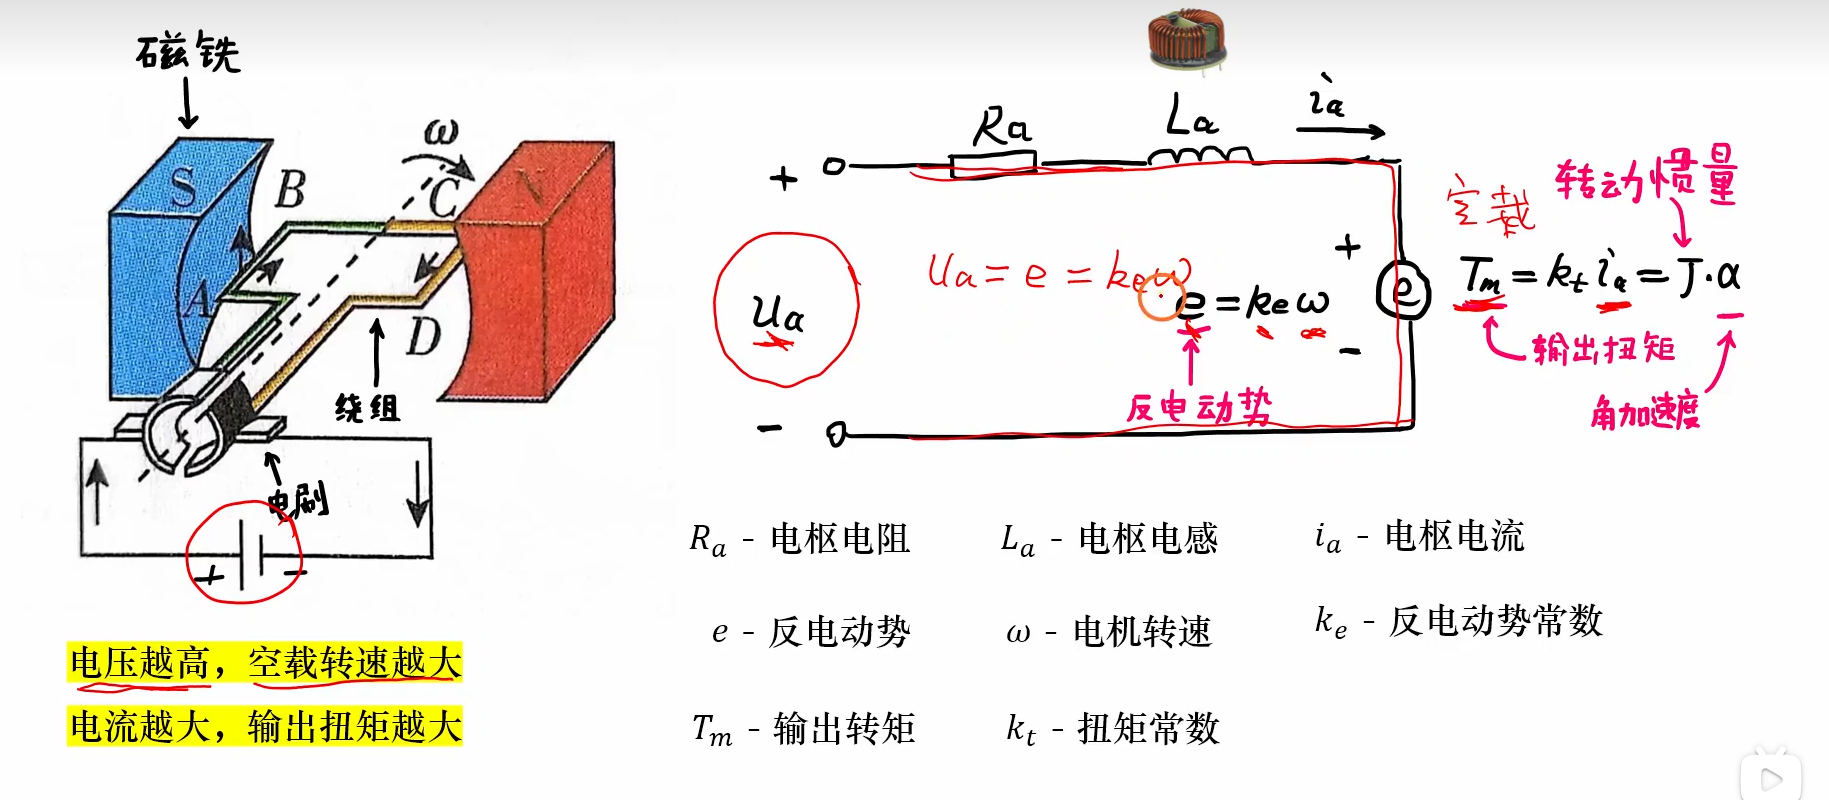 磁铁
S
B
ω
C
N
A
D
绕组
电刷
+ -
电压越高，空载转速越大
电流越大，输出扭矩越大
Ra
La
ia
+
Ua
-
Ua = e = keω
e = keω
反电动势
+
e
-
空载
转动惯量
Tm = kt ia = J·α
输出扭矩
角加速度
Ra - 电枢电阻
La - 电枢电感
ia - 电枢电流
e - 反电动势
ω - 电机转速
ke - 反电动势常数
Tm - 输出转矩
kt - 扭矩常数